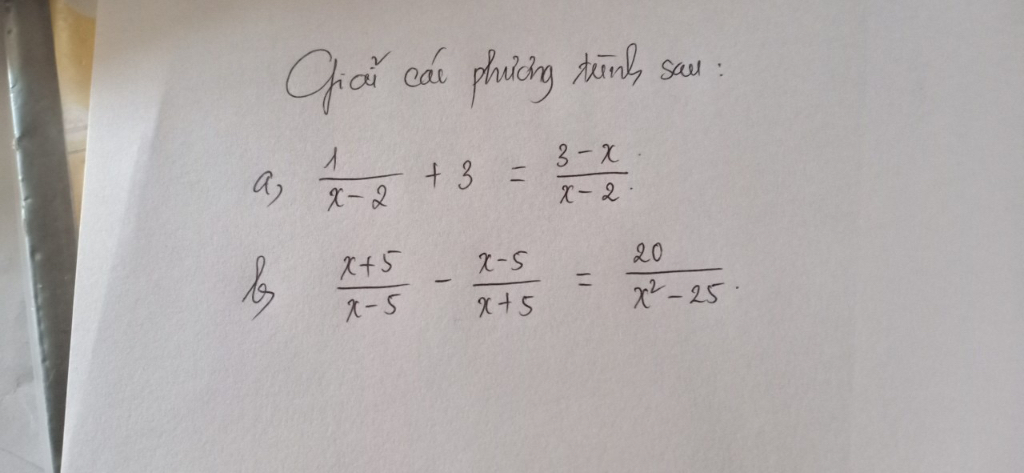 Giải các phương trình sau:
a, \frac{1}{x-2} + 3 = \frac{3-x}{x-2}.
b, \frac{x+5}{x-5} - \frac{x-5}{x+5} = \frac{20}{x^2-25}.